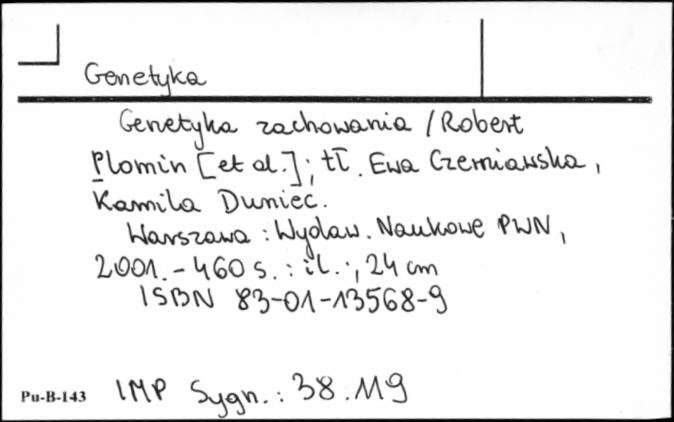 Genetyka
Genetyka zachowania / Robert
Plomin [et al.]; tł. Ewa Czerniawska,
Kamila Duniec.
Warszawa : Wydaw. Naukowe PWN,
2001. - 460 s. : il. ; 24 cm
ISBN 83-01-13568-9
Pu-B-143 IMP Sygn.: 38.119